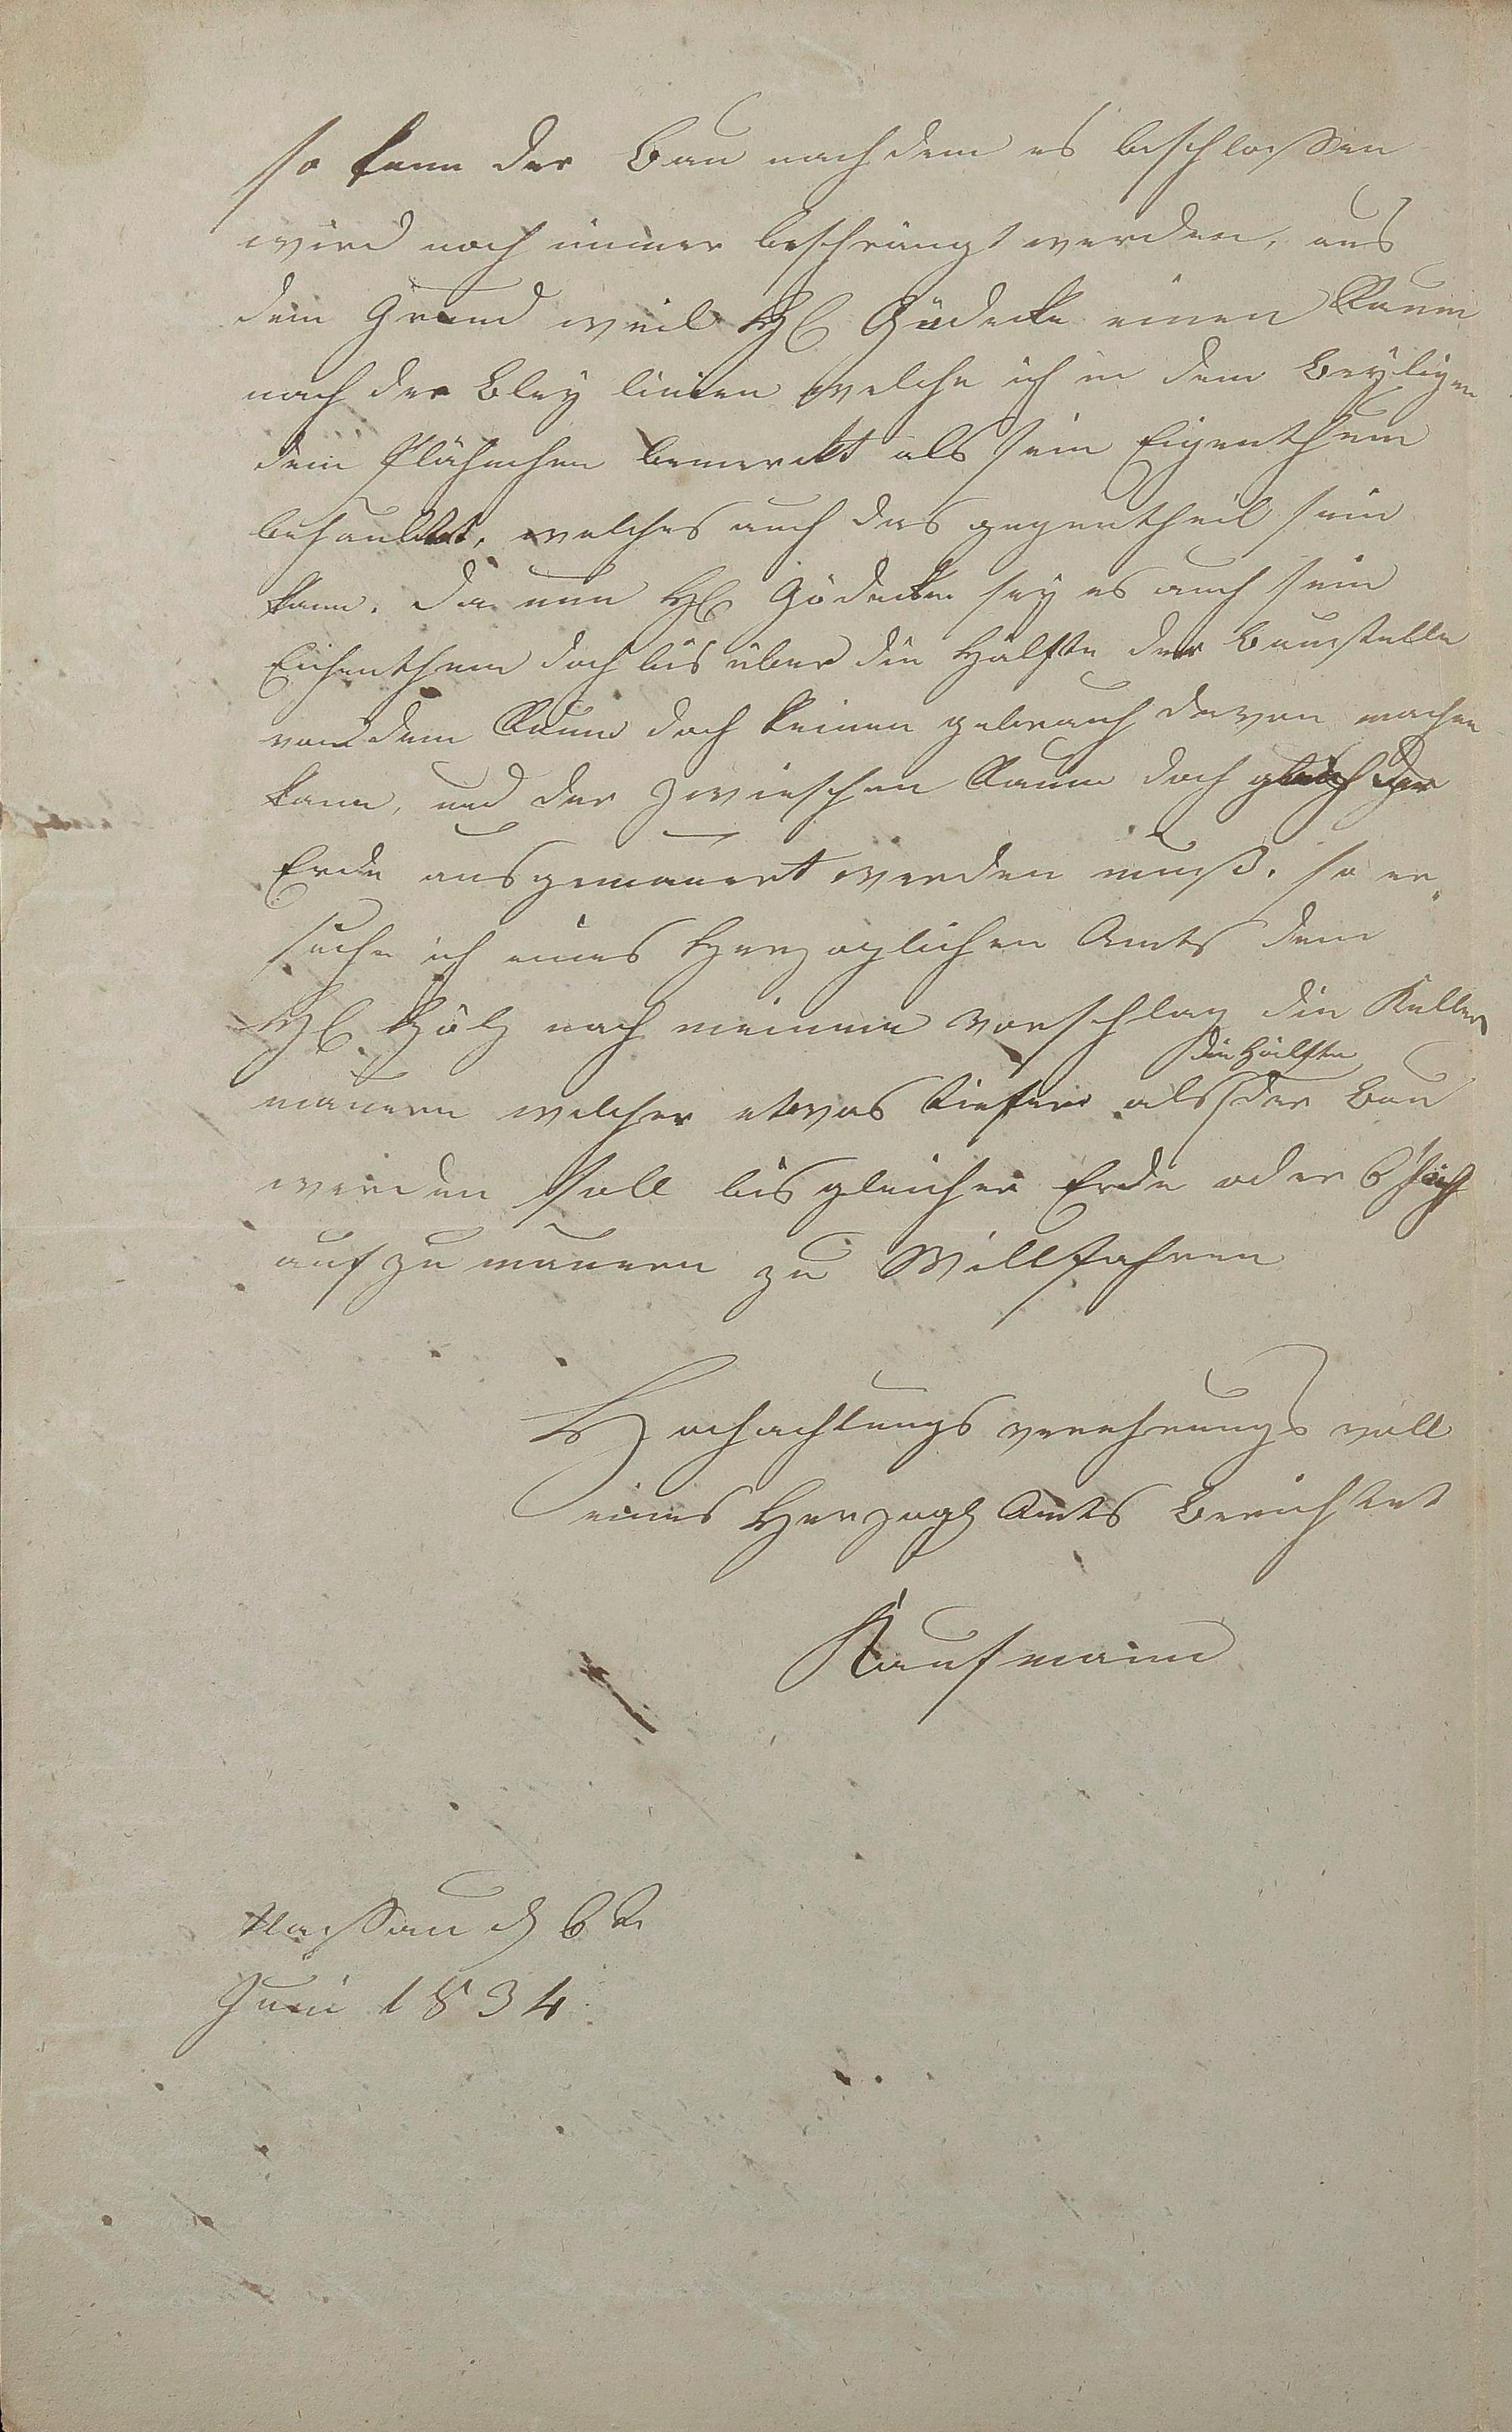 so kann der Bau nachdem es beschlossen
wird noch immer beschrängt werden, aus
dem Grund weil H Gödecke einen Raum
nach der Bley linien welche ich in dem Beyligen
dem Plähnchen bemerckt als sein Eigenthum
behaubtet, welches auch das gegentheil sein
kann. Da nun H Gödecke sey es auch sein
Eichenthum doch bis über die Hälfte der Baustelle
von dem Raum doch keinen gebrauch davon machen
kann, und der zwieschen Raum doch gleich der
Erde ausgemauert werden muß. so er„
suche ich eines Herzoglichen Amts dem
H Hölz nach meinem vorschlag die Keller
die Hälfte
mauern welcher etwas tiefer als der Bau
werden soll bis gleicher Erde oder 6
auf zu mauern zu Willfahren
Hochachtungs verehrungs voll
eines Herzogl Amts Berichtet
Kaufmann
Nassau d 6t
Juni 1834.